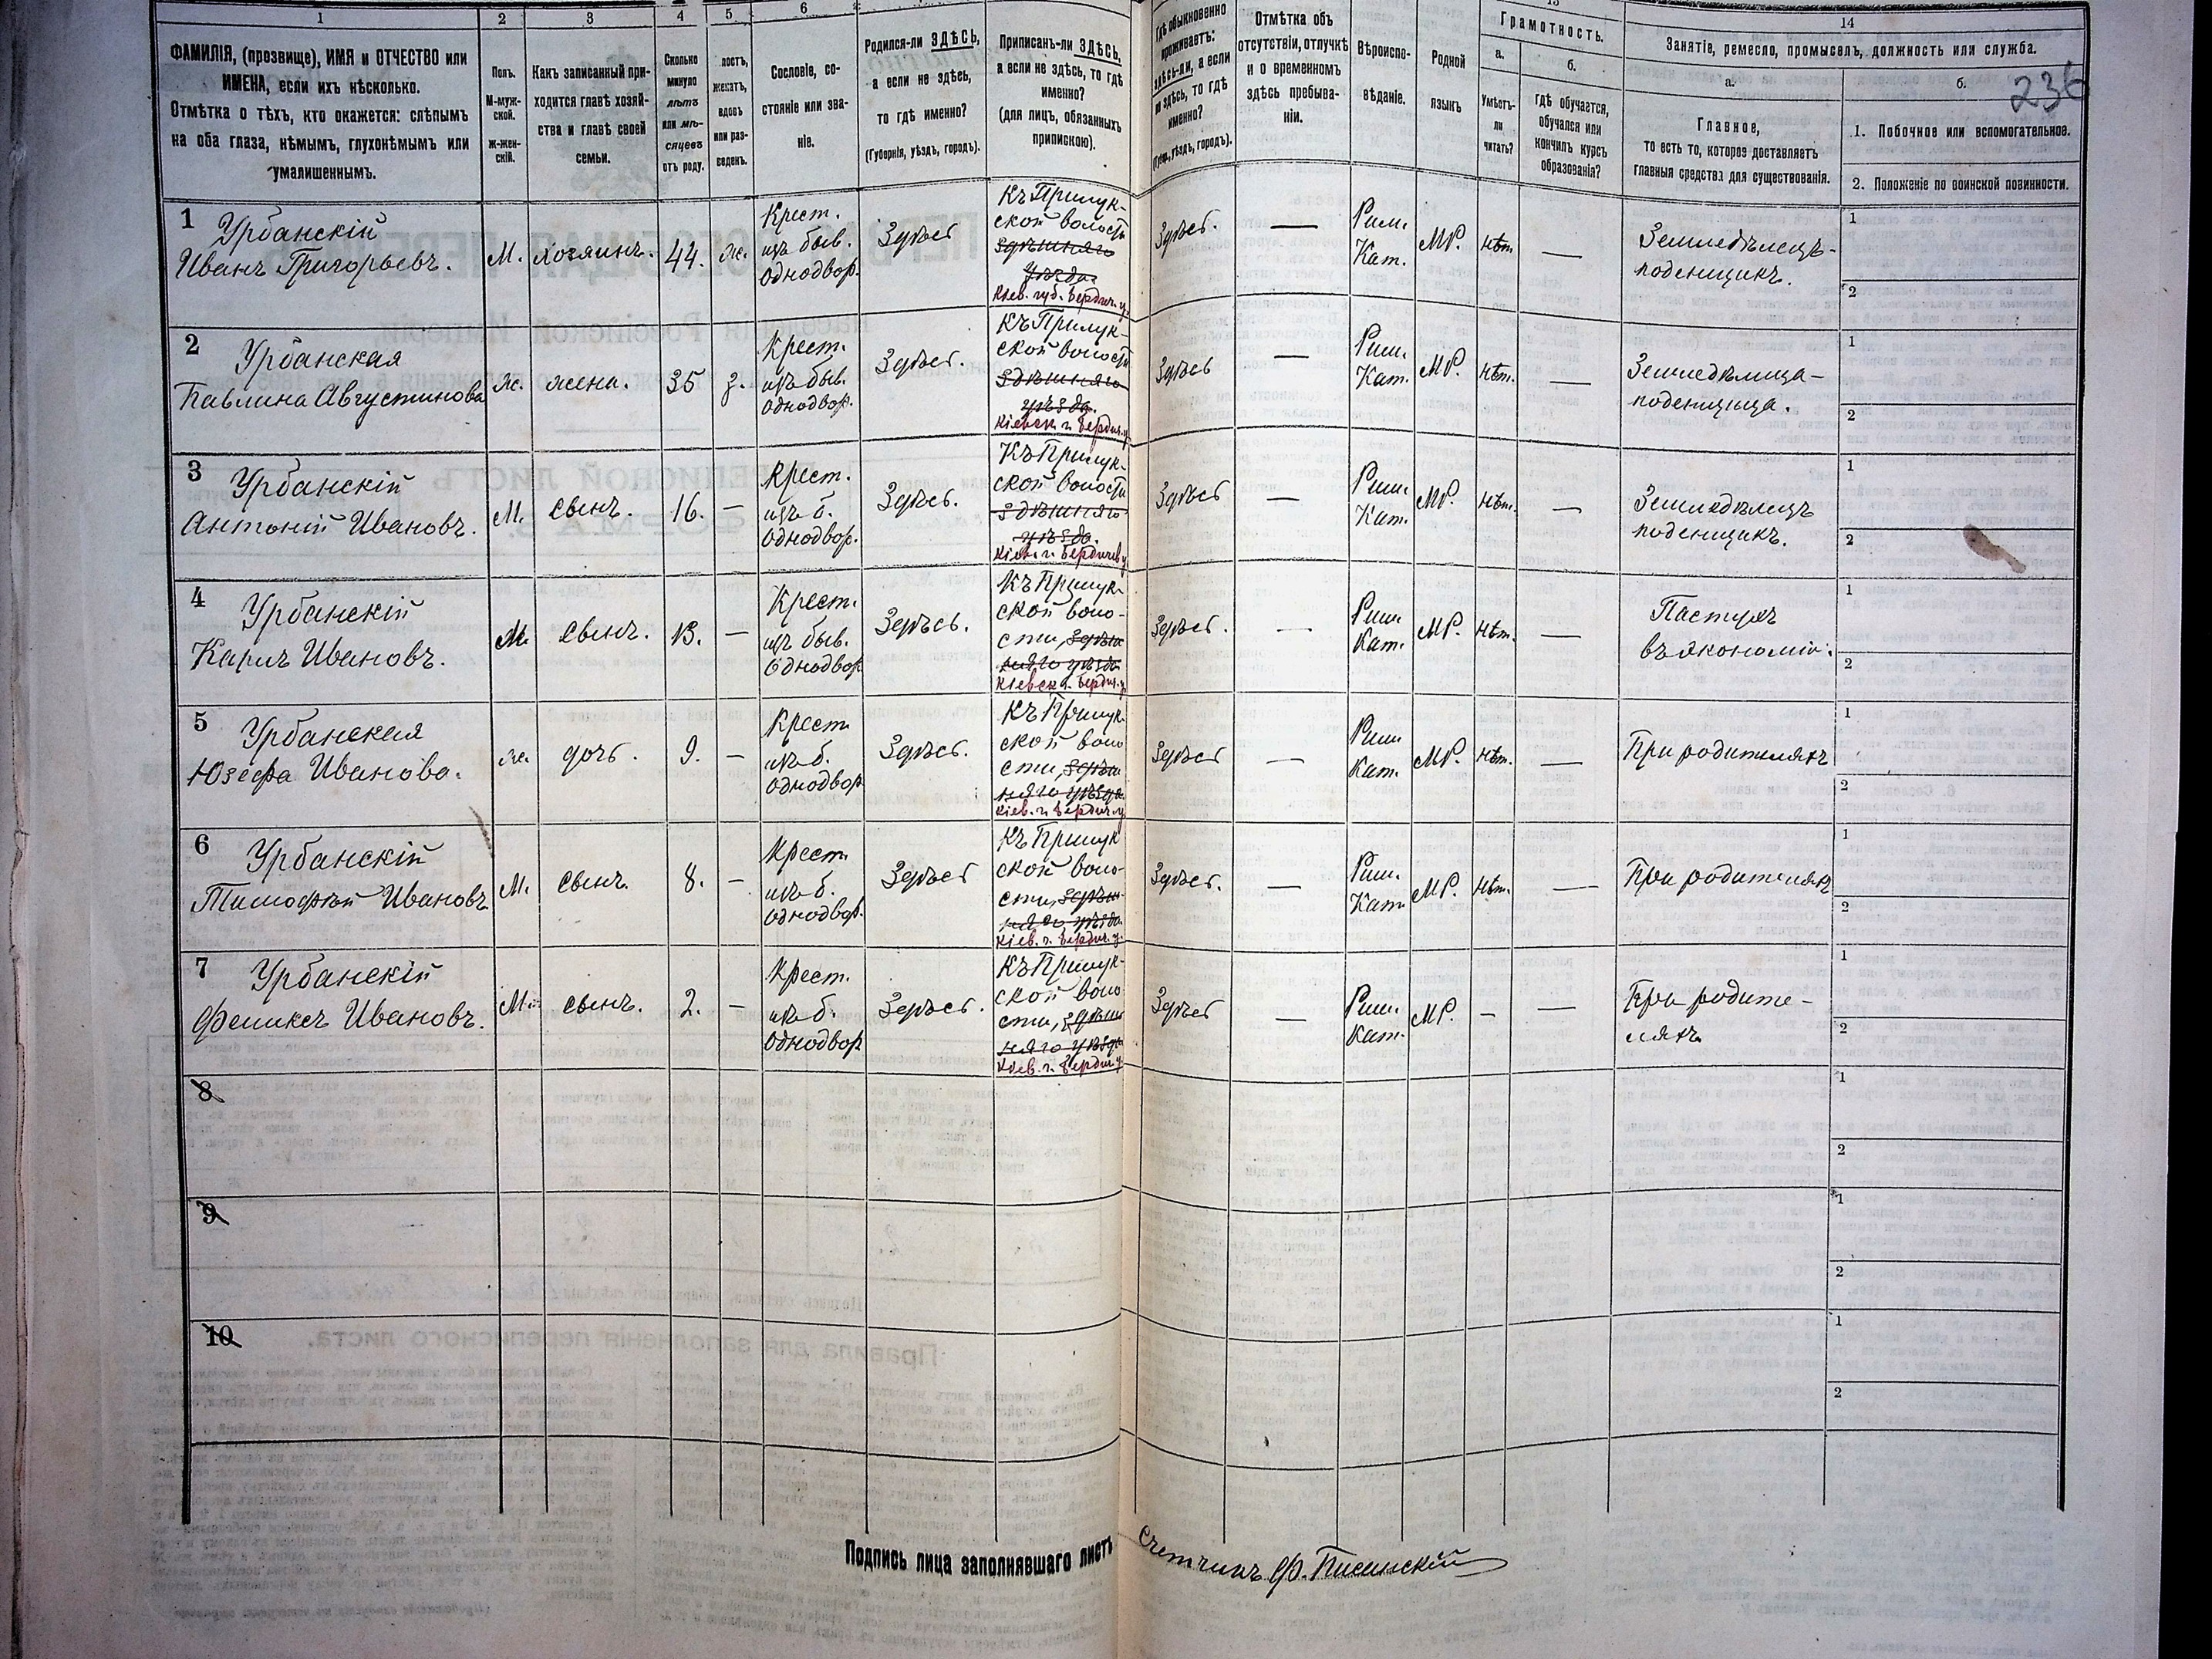 1
2
3
4
5
6
14
236
ФАМИЛІЯ, (прозвище), ИМЯ и ОТЧЕСТВО или
ИМЕНА, если ихъ нѣсколько.
Отмѣтка о тѣхъ, кто окажется: слѣпымъ
на оба глаза, нѣмымъ, глухонѣмымъ или
умалишеннымъ.
Полъ.
М-муж-
ской.
ж-жен-
скій.
Какъ записанный при-
ходится главѣ хозяй-
ства и главѣ своей
семьи.
Сколько
минуло
лѣтъ
или мѣ-
сяцевъ
отъ роду.
лостъ,
женатъ,
вдовъ
или раз-
веденъ.
Сословіе, со-
стояніе или зва-
ніе.
Родился-ли ЗДѢСЬ,
а если не здѣсь,
то гдѣ именно?
(Губернія, уѣздъ, городъ).
Приписанъ-ли ЗДѢСЬ,
а если не здѣсь, то гдѣ
именно?
(для лицъ, обязанныхъ
припискою).
Гдѣ обыкновенно
проживаетъ:
здѣсь-ли, а если
не здѣсь, то гдѣ
именно?
(Губ., уѣздъ, городъ).
Отмѣтка объ
отсутствіи, отлучкѣ
и о временномъ
здѣсь пребыва-
ніи.
Вѣроиспо-
вѣданіе.
Родной
языкъ
Грамотность.
а.
Умѣетъ-
ли
читать?
б.
гдѣ обучается,
обучался или
кончилъ курсъ
образованія?
Занятіе, ремесло, промыселъ, должность или служба.
а.
Главное,
то есть то, которое доставляетъ
главныя средства для существованія.
б.
1. Побочное или вспомогательное.
2. Положеніе по воинской повинности.
1
Урбанскій
Иванъ Григорьевъ.
М.
хозяинъ.
44.
ж.
Крест.
изъ быв.
однодвор.
Здѣсь
Къ Прилук-
ской волости
здѣшняго
уѣзда.
Кіев. губ. Бердич. у.
Здѣсь.
—
Рим.
Кат.
МР.
нѣт.
—
Земледѣлецъ-
поденщикъ.
1
2
2
Урбанская
Павлина Августинова
ж.
жена.
35
з.
Крест.
изъ быв.
однодвор.
Здѣсь.
Къ Прилук-
ской волости
здѣшняго
уѣзда.
Кіевск. г. Бердич. у.
Здѣсь
—
Рим.
Кат.
МР.
нѣт.
—
Земледѣлица-
поденщица.
1
2
3
Урбанскій
Антоній Ивановъ.
М.
сынъ.
16.
—
Крест.
изъ б.
однодвор.
Здѣсь.
Къ Прилук-
ской волости
здѣшняго
уѣзда.
Кіев. г. Бердичев. у.
Здѣсь
—
Рим.
Кат.
МР.
нѣт.
—
Земледѣлецъ
поденщикъ.
1
2
4
Урбанскій
Карлъ Ивановъ.
М.
сынъ.
13.
—
Крест.
изъ быв.
однодвор.
Здѣсь.
Къ Прилук-
ской воло-
сти, здѣш-
няго уѣзда
Кіевск. г. Бердич. у.
Здѣсь.
—
Рим.
Кат.
МР.
нѣт.
—
Пастухъ
въ экономіи.
1
2
5
Урбанская
Юзефа Иванова.
ж.
дочь.
9.
—
Крест.
изъ б.
однодвор.
Здѣсь.
Къ Прилук-
ской воло
сти, здѣш
няго уѣзда
Кіев. г. Бердич. у.
Здѣсь
—
Рим.
Кат.
МР.
нѣт.
—
При родителяхъ
1
2
6
Урбанскій
Тимофѣй Ивановъ
М.
сынъ.
8.
—
Крест.
изъ б.
однодвор.
Здѣсь
Къ Прилук
ской воло-
сти, здѣш-
няго уѣзда.
Кіев. г. Бердич. у.
Здѣсь.
—
Рим.
Кат.
МР.
нѣт.
—
При родителяхъ
1
2
7
Урбанскій
Феликсъ Ивановъ.
М.
сынъ.
2.
—
Крест.
изъ б.
однодвор
Здѣсь.
Къ Прилук-
ской воло
сти, здѣш
няго уѣзда
Кіев. г. Бердич. у.
Здѣсь
—
Рим.
Кат.
МР.
—
—
При родите-
ляхъ
1
2
8
1
2
9
1
2
10
1
2
Подпись лица заполнявшаго листъ
Счетчикъ Ф.